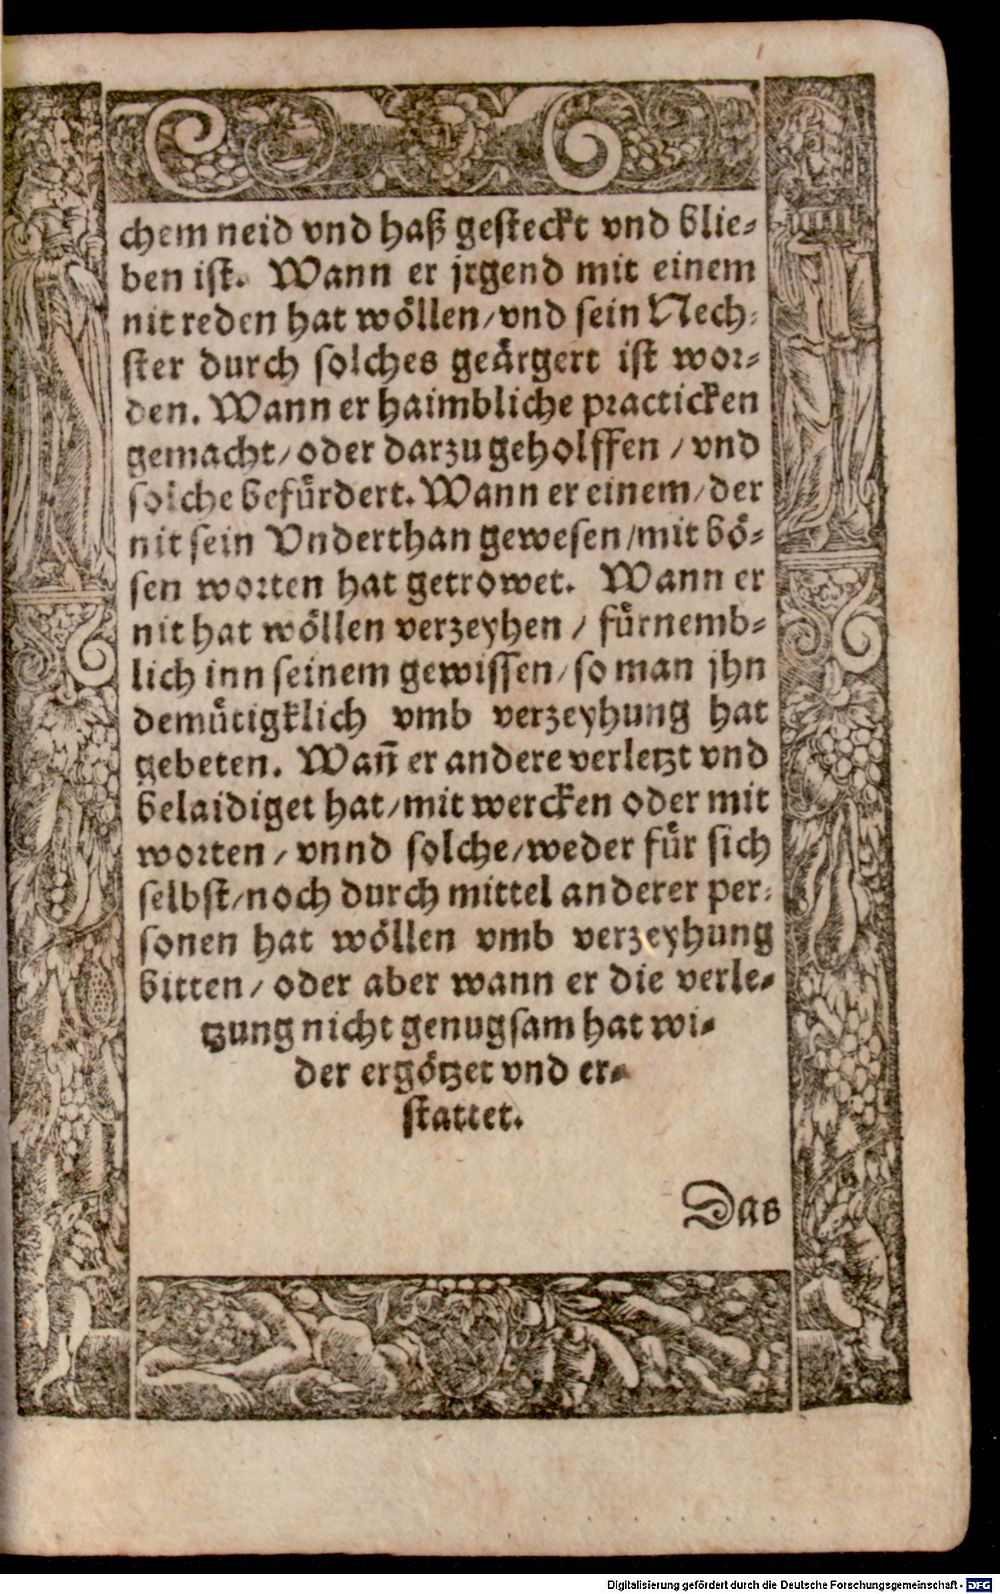 chem neid vnd haß gesteckt vnd blie-
ben ist. Wann er jrgend mit einem
nit reden hat wöllen/ vnd sein Nech-
ster durch solches geärgert ist wor-
den. Wann er haimbliche practicken
gemacht/ oder darzu geholffen / vnd
solche befürdert. Wann er einem/ der
nit sein Vnderthan gewesen/ mit bö-
sen worten hat getrowet. Wann er
nit hat wöllen verzeyhen / fürnemb-
lich inn seinem gewissen/ so man jhn
demütigklich vmb verzeyhung hat
gebeten. Wañ er andere verletzt vnd
belaidiget hat/ mit wercken oder mit
worten / vnnd solche/ weder für sich
selbst/ noch durch mittel anderer per-
sonen hat wöllen vmb verzeyhung
bitten/ oder aber wann er die verle-
tzung nicht genugsam hat wi-
der ergötzet vnd er-
stattet.
Das
Digitalisierung gefördert durch die Deutsche Forschungsgemeinschaft - DFG